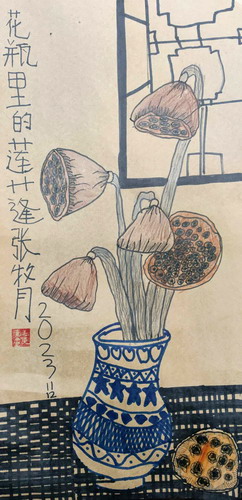 花瓶里的莲蓬张牧月
2023